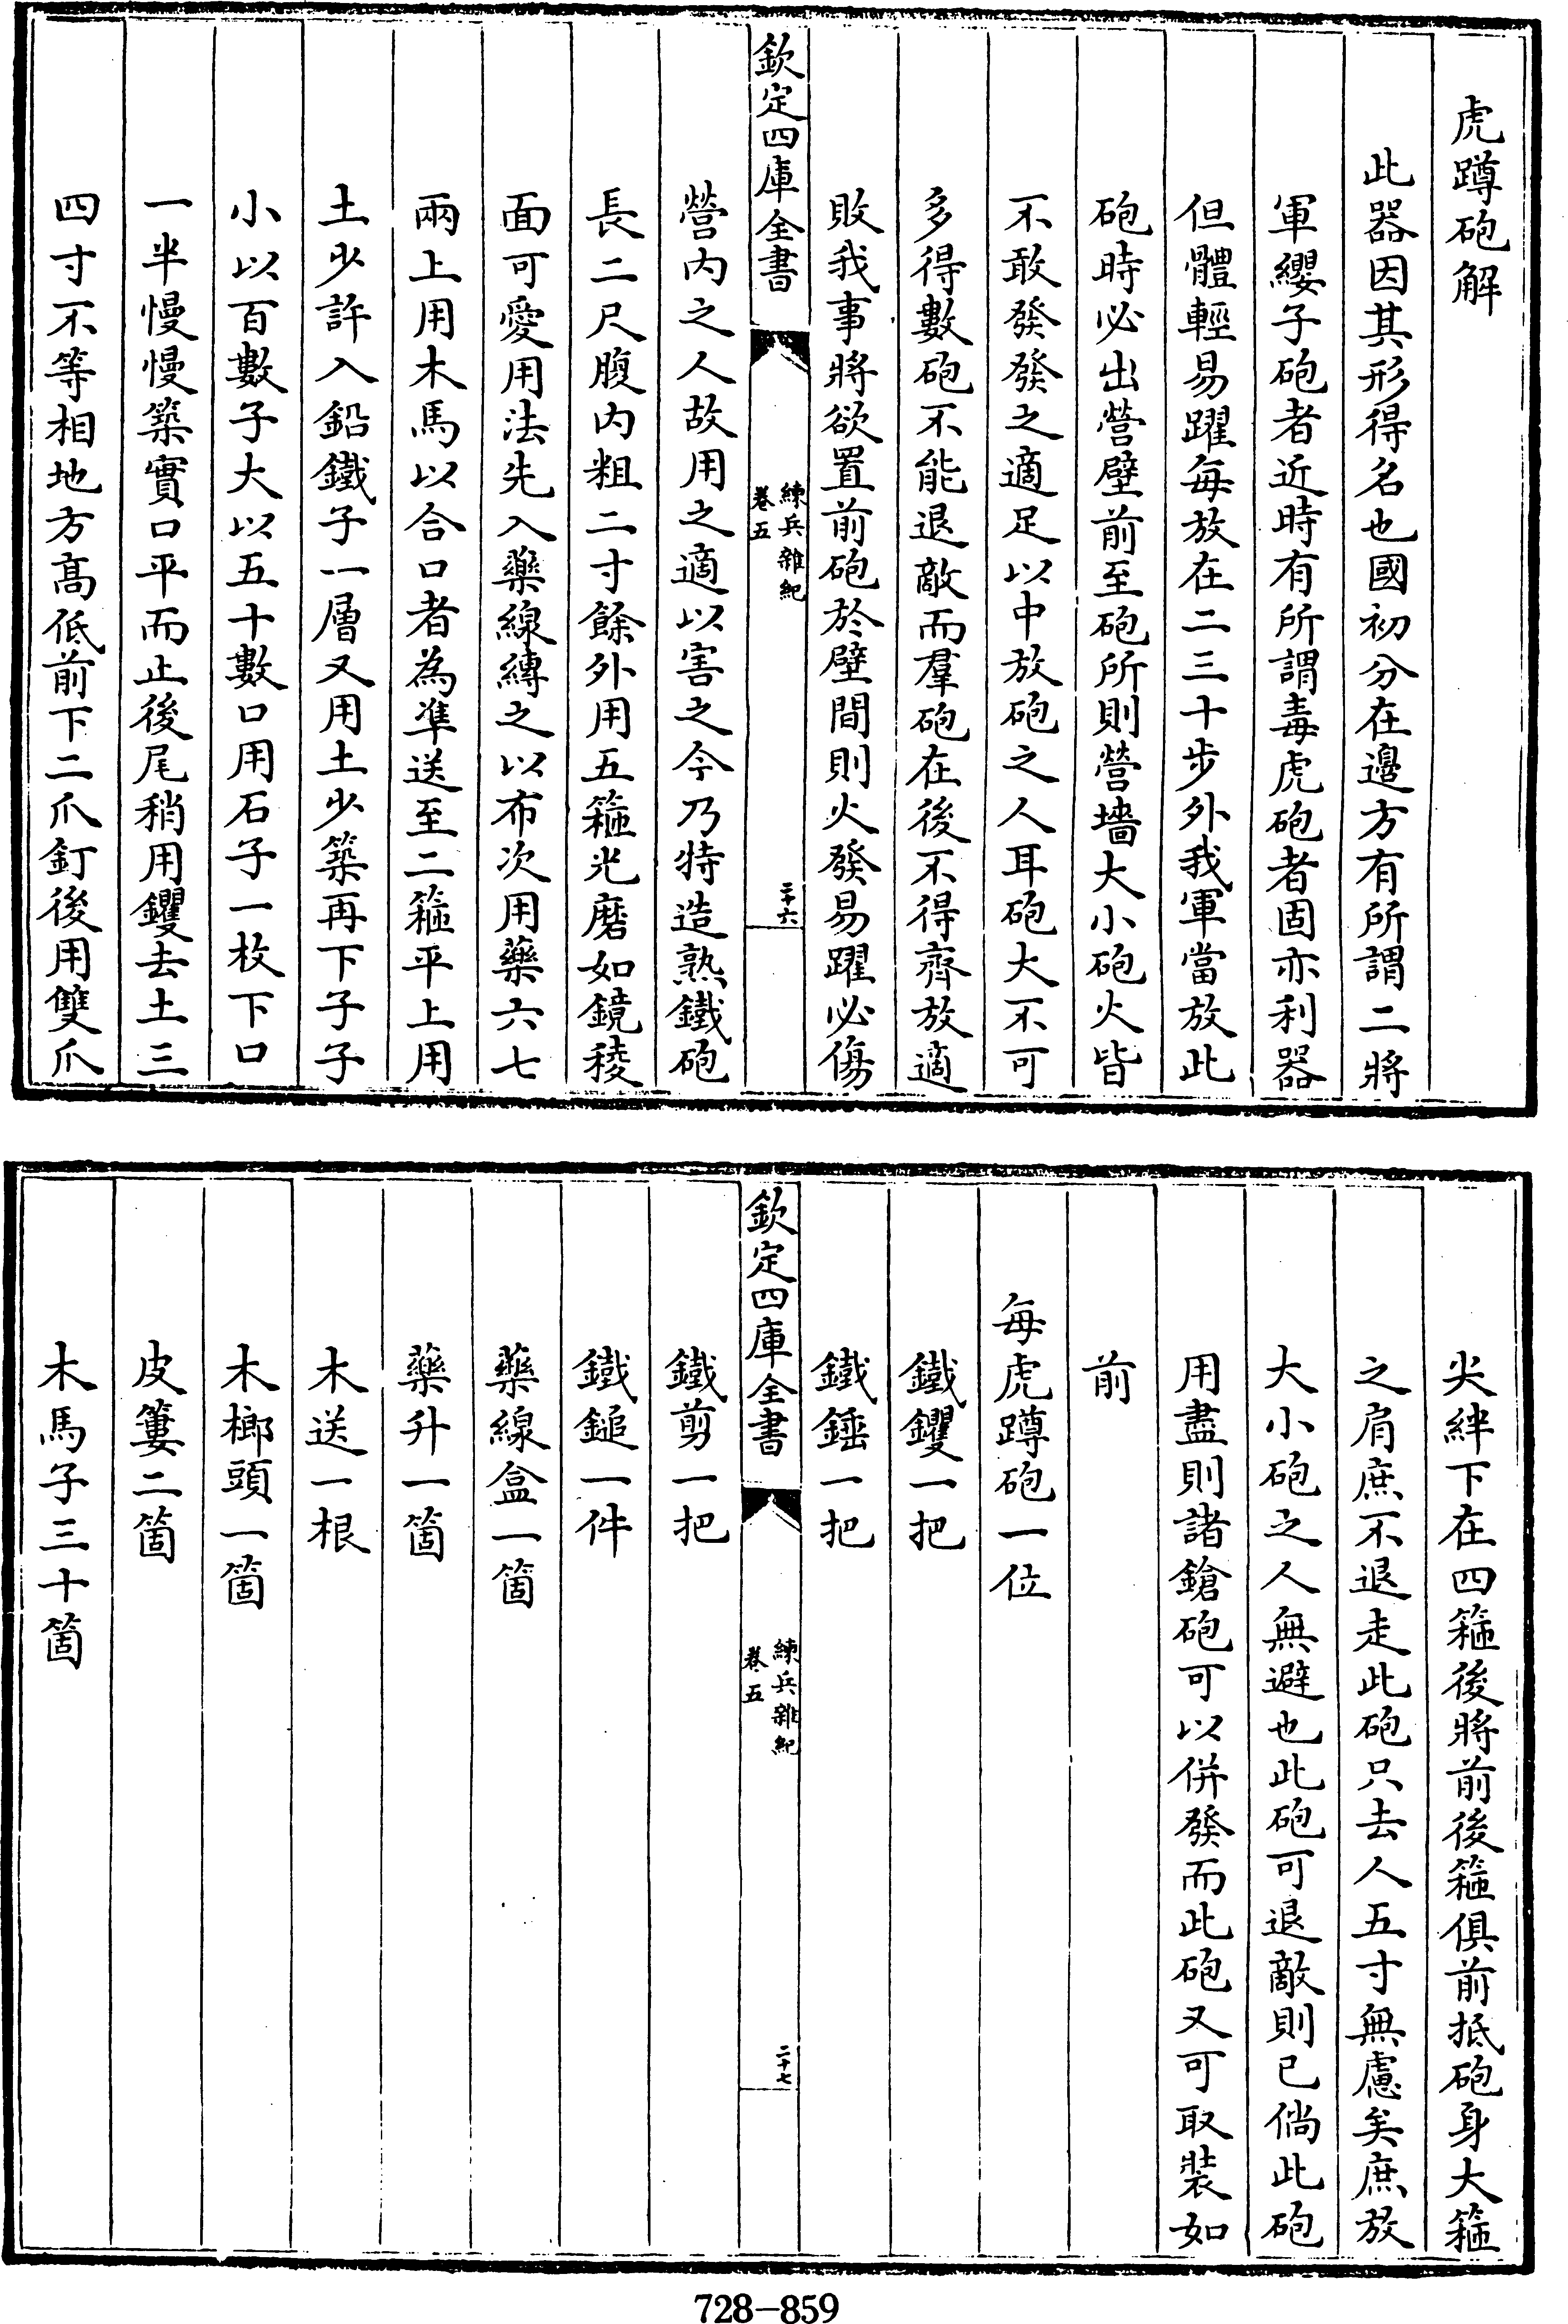 虎蹲砲解
此器因其形得名也國初分在邉方有所謂二將
軍纓子砲者近時有所謂毒虎砲者固亦利器
但體輕易躍每放在二三十步外我軍當放此
砲時必出營壁前至砲所則營墻大小砲火皆
不敢發發之適足以中放砲之人耳砲大不可
多得數砲不能退敵而羣砲在後不得齊放適
敗我事將欲置前砲於壁間則火發易躍必傷
欽定四庫全書
練兵雜紀
卷五
二十六
營內之人故用之適以害之今乃特造熟鐵砲
長二尺腹內粗二寸餘外用五箍光磨如鏡稜
面可愛用法先入藥線縛之以布次用藥六七
兩上用木馬以合口者為凖送至二箍平上用
土少許入鉛鐵子一層又用土少築再下子子
小以百數子大以五十數口用石子一枚下口
一半慢慢築實口平而止後尾稍用钁去土三
四寸不等相地方髙低前下二爪釘後用雙爪
尖絆下在四箍後將前後箍俱前抵砲身大箍
之肩庶不退走此砲只去人五寸無慮矣庶放
大小砲之人無避也此砲可退敵則已倘此砲
用盡則諸鎗砲可以併發而此砲又可取裝如
前
每虎蹲砲一位
鐵钁一把
鐵錘一把
欽定四庫全書
練兵雜紀
卷五
二十七
鐵剪一把
鐵鎚一件
藥線盒一箇
藥升一箇
木送一根
木榔頭一箇
皮簍二箇
木馬子三十箇
728-859